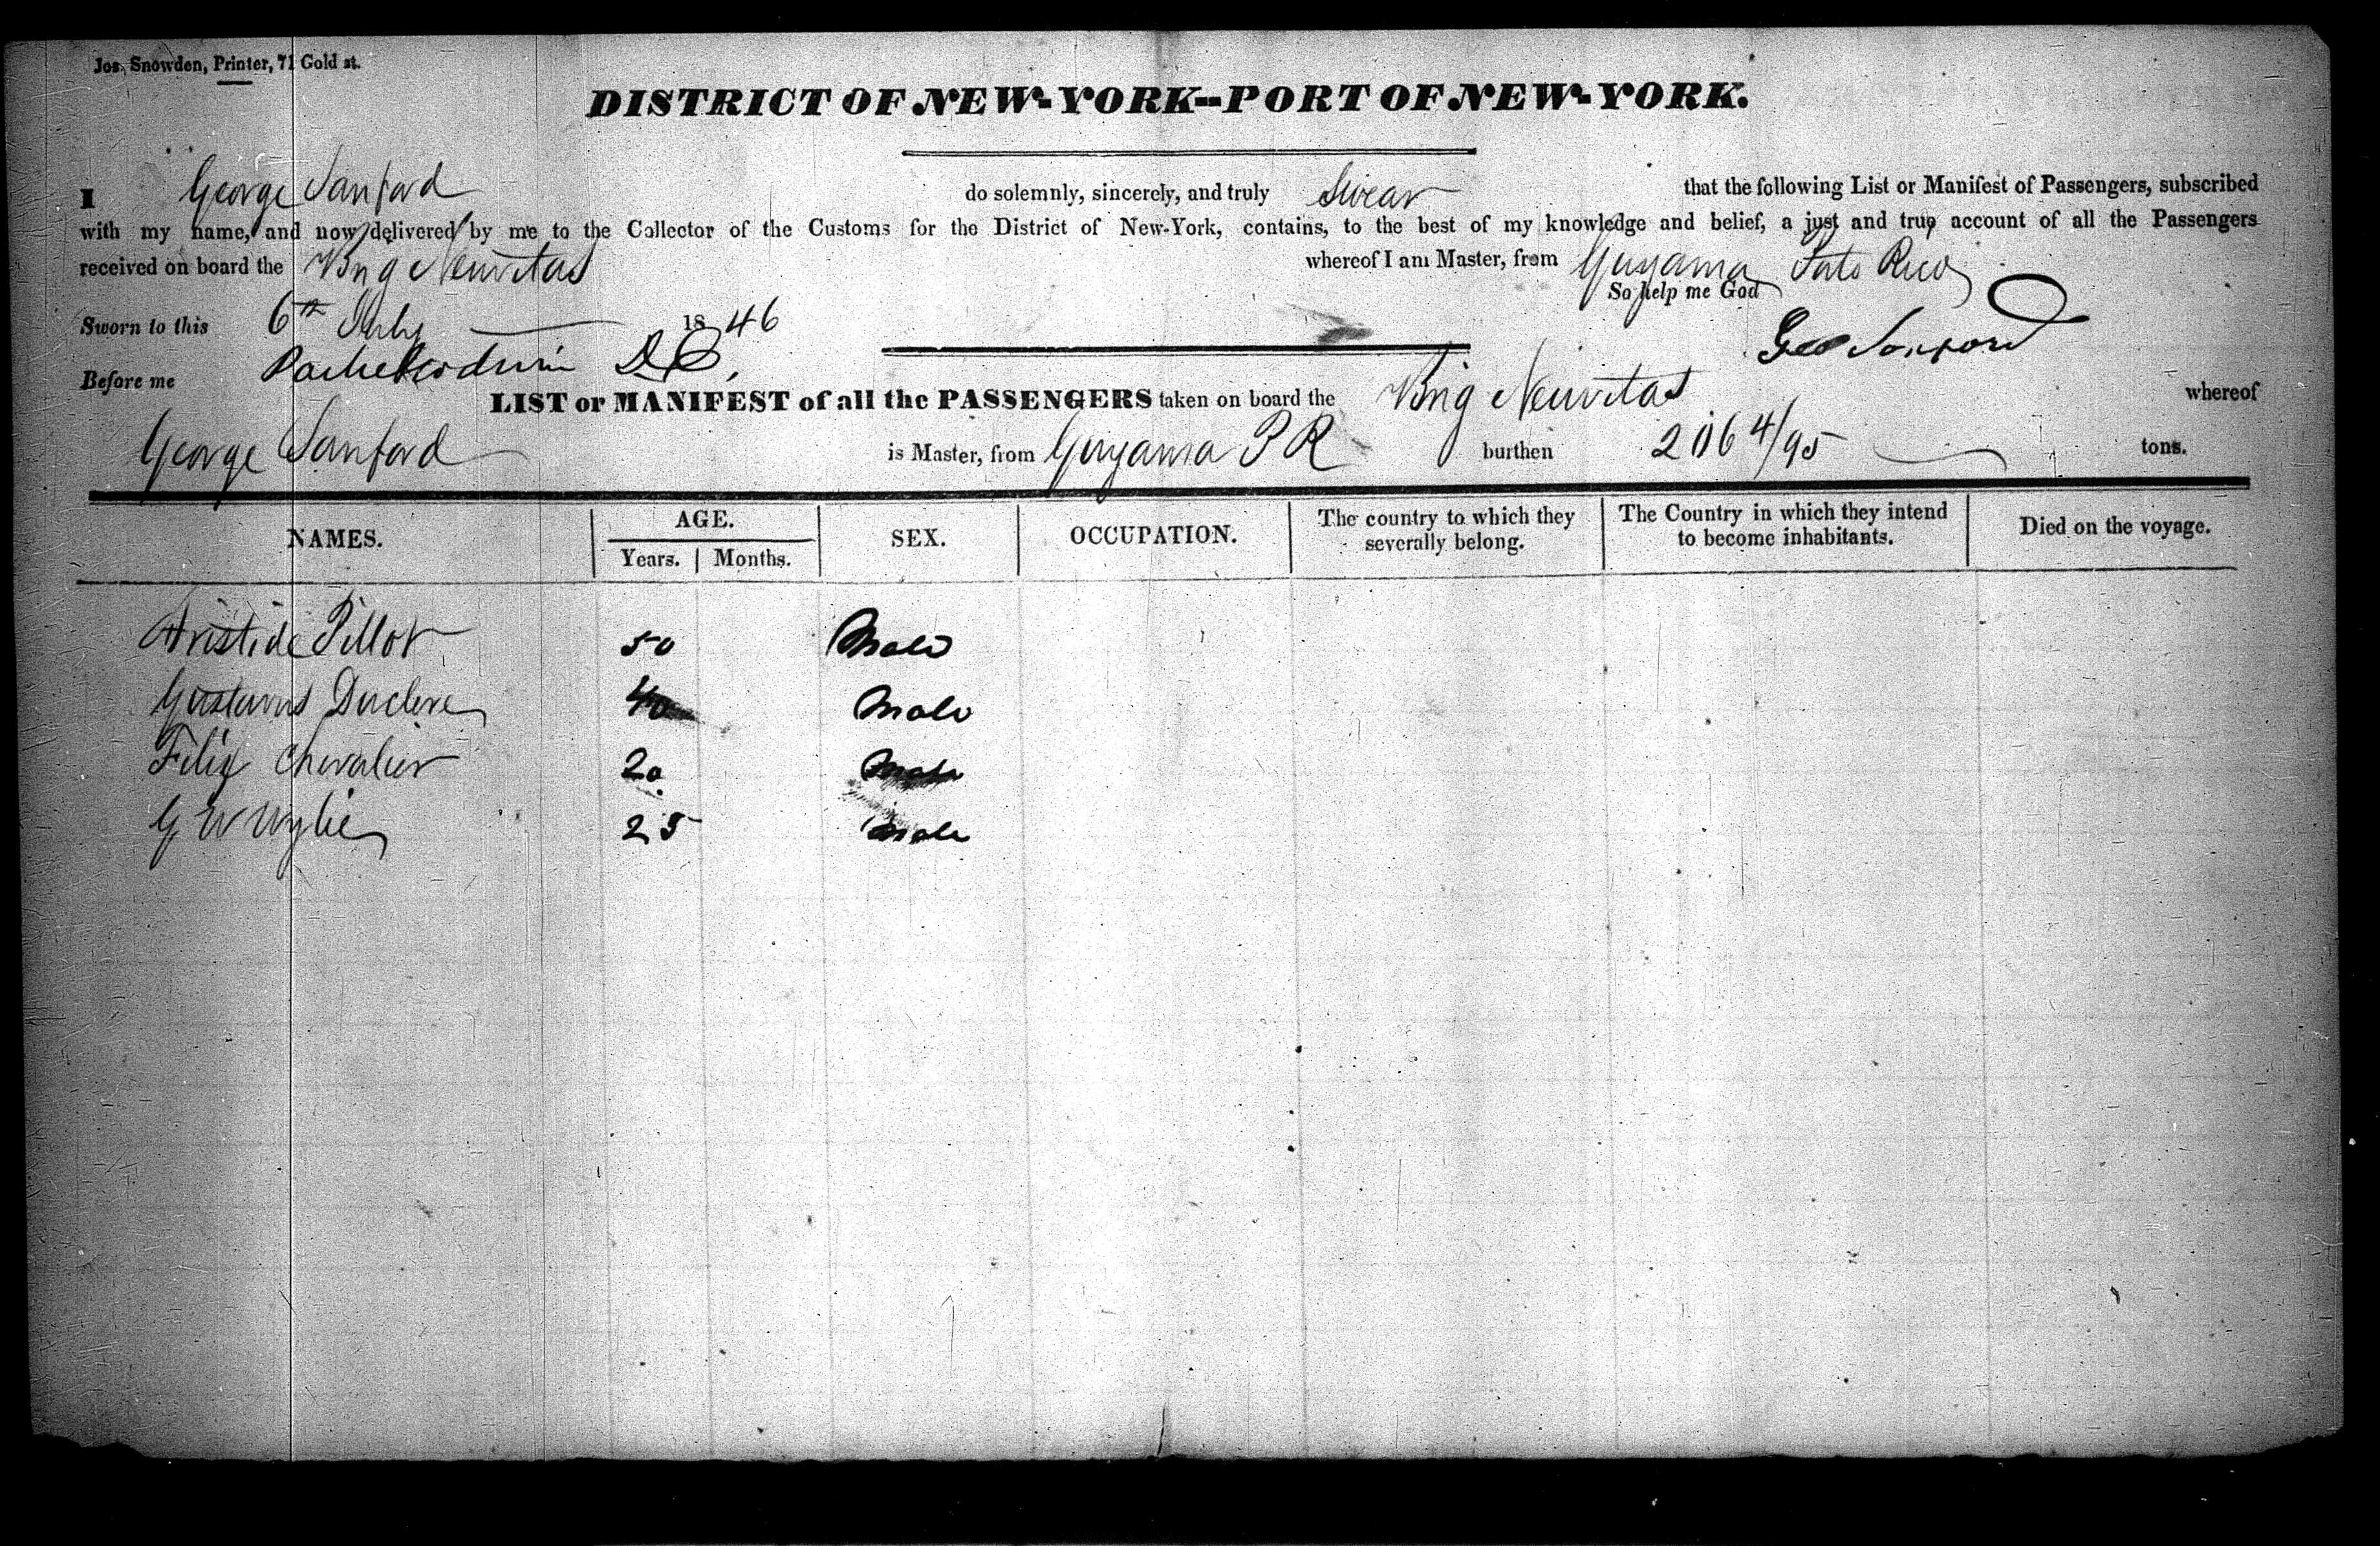 Jos. Snowden, Printer, 71 Gold st.
DISTRICT OF NEW-YORK--PORT OF NEW-YORK.
I George Sanford do solemnly, sincerely, and truly Swear that the following List or Manifest of Passengers, subscribed
with my name, and now delivered by me to the Collector of the Customs for the District of New-York, contains, to the best of my knowledge and belief, a just and true account of all the Passengers
received on board the Brig Neuvitas whereof I am Master, from Guyama Porto Rico
So help me God
Sworn to this 6th July 1846 Geo Sanford
Before me D.C.
LIST or MANIFEST of all the PASSENGERS taken on board the Brig Neuvitas whereof
George Sanford is Master, from Guyama P R burthen 206 4/95 tons.
NAMES. AGE. SEX. OCCUPATION. The country to which they severally belong. The Country in which they intend to become inhabitants. Died on the voyage.
Years. Months.
Aristide Pillot 50 Male
Gustavus Duclere 40 Male
Felix Chevalier 20 Male
G W Wylie 25 Male